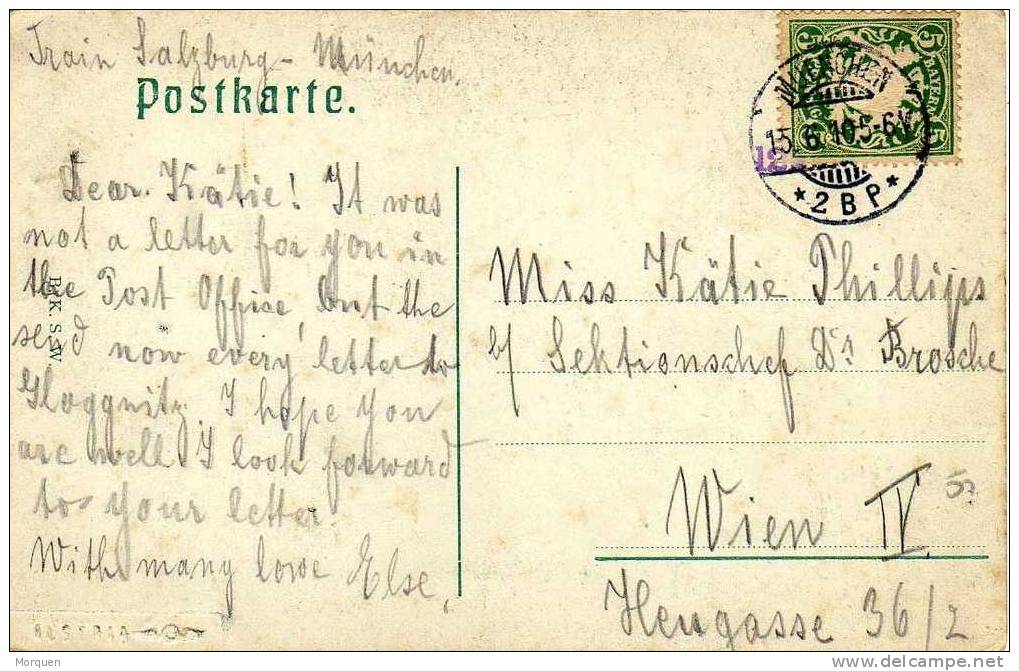 Train Salzburg - München.
Postkarte.
Dear Kätie! It was
not a letter for you in
the Post Office, but the
send now every letter to
Gloggnitz. I hope you
are well. I look forward
to your letter.
With many lowe Else,
B.K.S.W
5 BAYERN 5
MUENCHEN
15.6.10.5-6V
* 2 B P *
12
Miss Kätie Phillips
b/ Sektionschef Dr Brosche
Wien IV
Heugasse 36/2
AUSTRIA
Morquen
delcampe.net